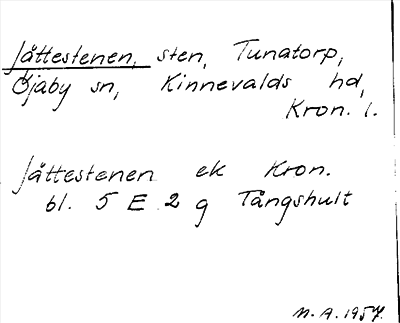 Jättestenen, sten, Tunatorp,
Öjaby sn, Kinnevalds hd,
Kron. l.
Jättestenen ek Kron.
bl. 5 E 2 g Tångshult
M.A. 1957.